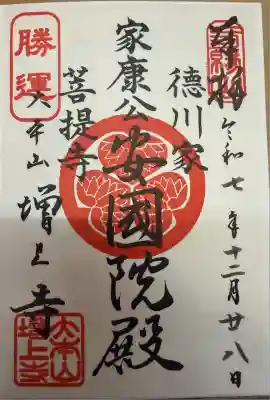 奉拝 令和七年十二月廿八日
徳川家
家康公 安國院殿
菩提寺
勝運
大本山 増上寺
大本山
増上寺